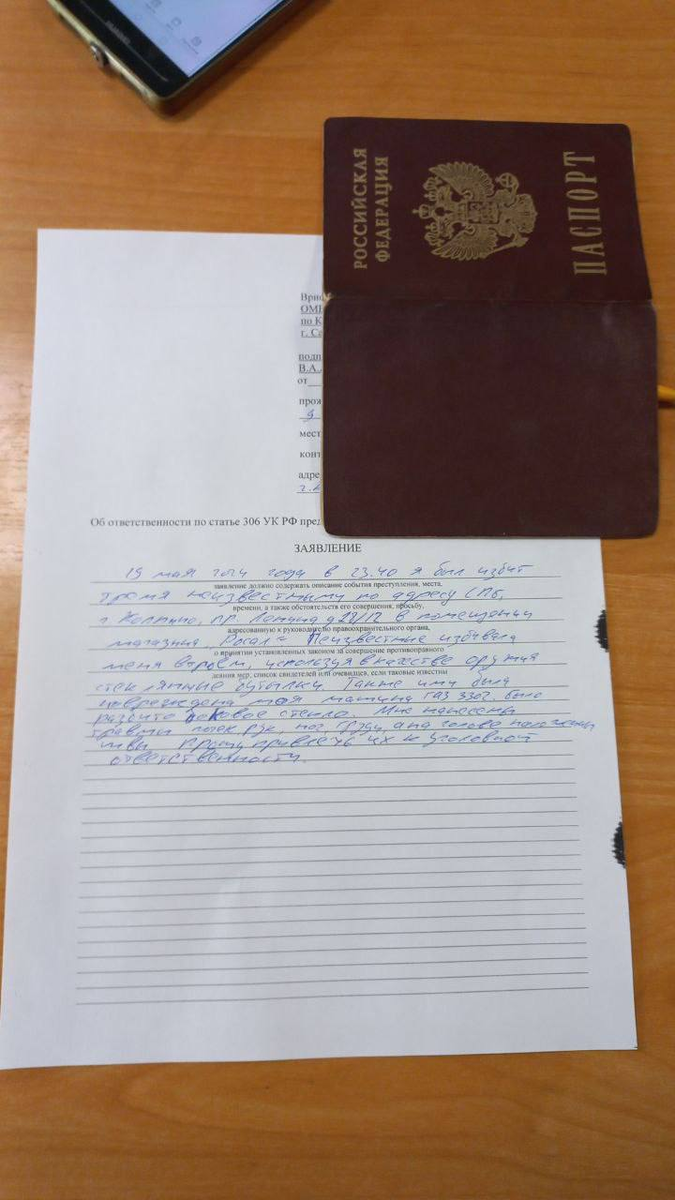 HUAWEI
РОССИЙСКАЯ
ФЕДЕРАЦИЯ
ПАСПОРТ
Врио
ОМ
по К
г. Са
подп
В.А.
от
прож
д
мест
конт
адре
г.
Об ответственности по статье 306 УК РФ пред
ЗАЯВЛЕНИЕ
19 мая 2024 года в 23.40 я был избит
заявление должно содержать описание события преступления, места,
тремя неизвестными по адресу СПб,
времени, а также обстоятельств его совершения, просьбу,
г Колпино, пр Ленина д 28/12 в помещении
адресованную к руководству правоохранительного органа,
магазина Неизвестные избивали
о принятии установленных законом за совершение противоправного
меня втроём, используя в качестве оружия
деяния мер, список свидетелей или очевидцев, если таковые известны
стеклянные бутылки. Также ими была
повреждена моя машина ГАЗ 3302, было
разбито боковое стекло. Мне нанесены
травмы рук, ног, груди, а на голове наложены
швы. Прошу привлечь их к уголовной
ответственности.